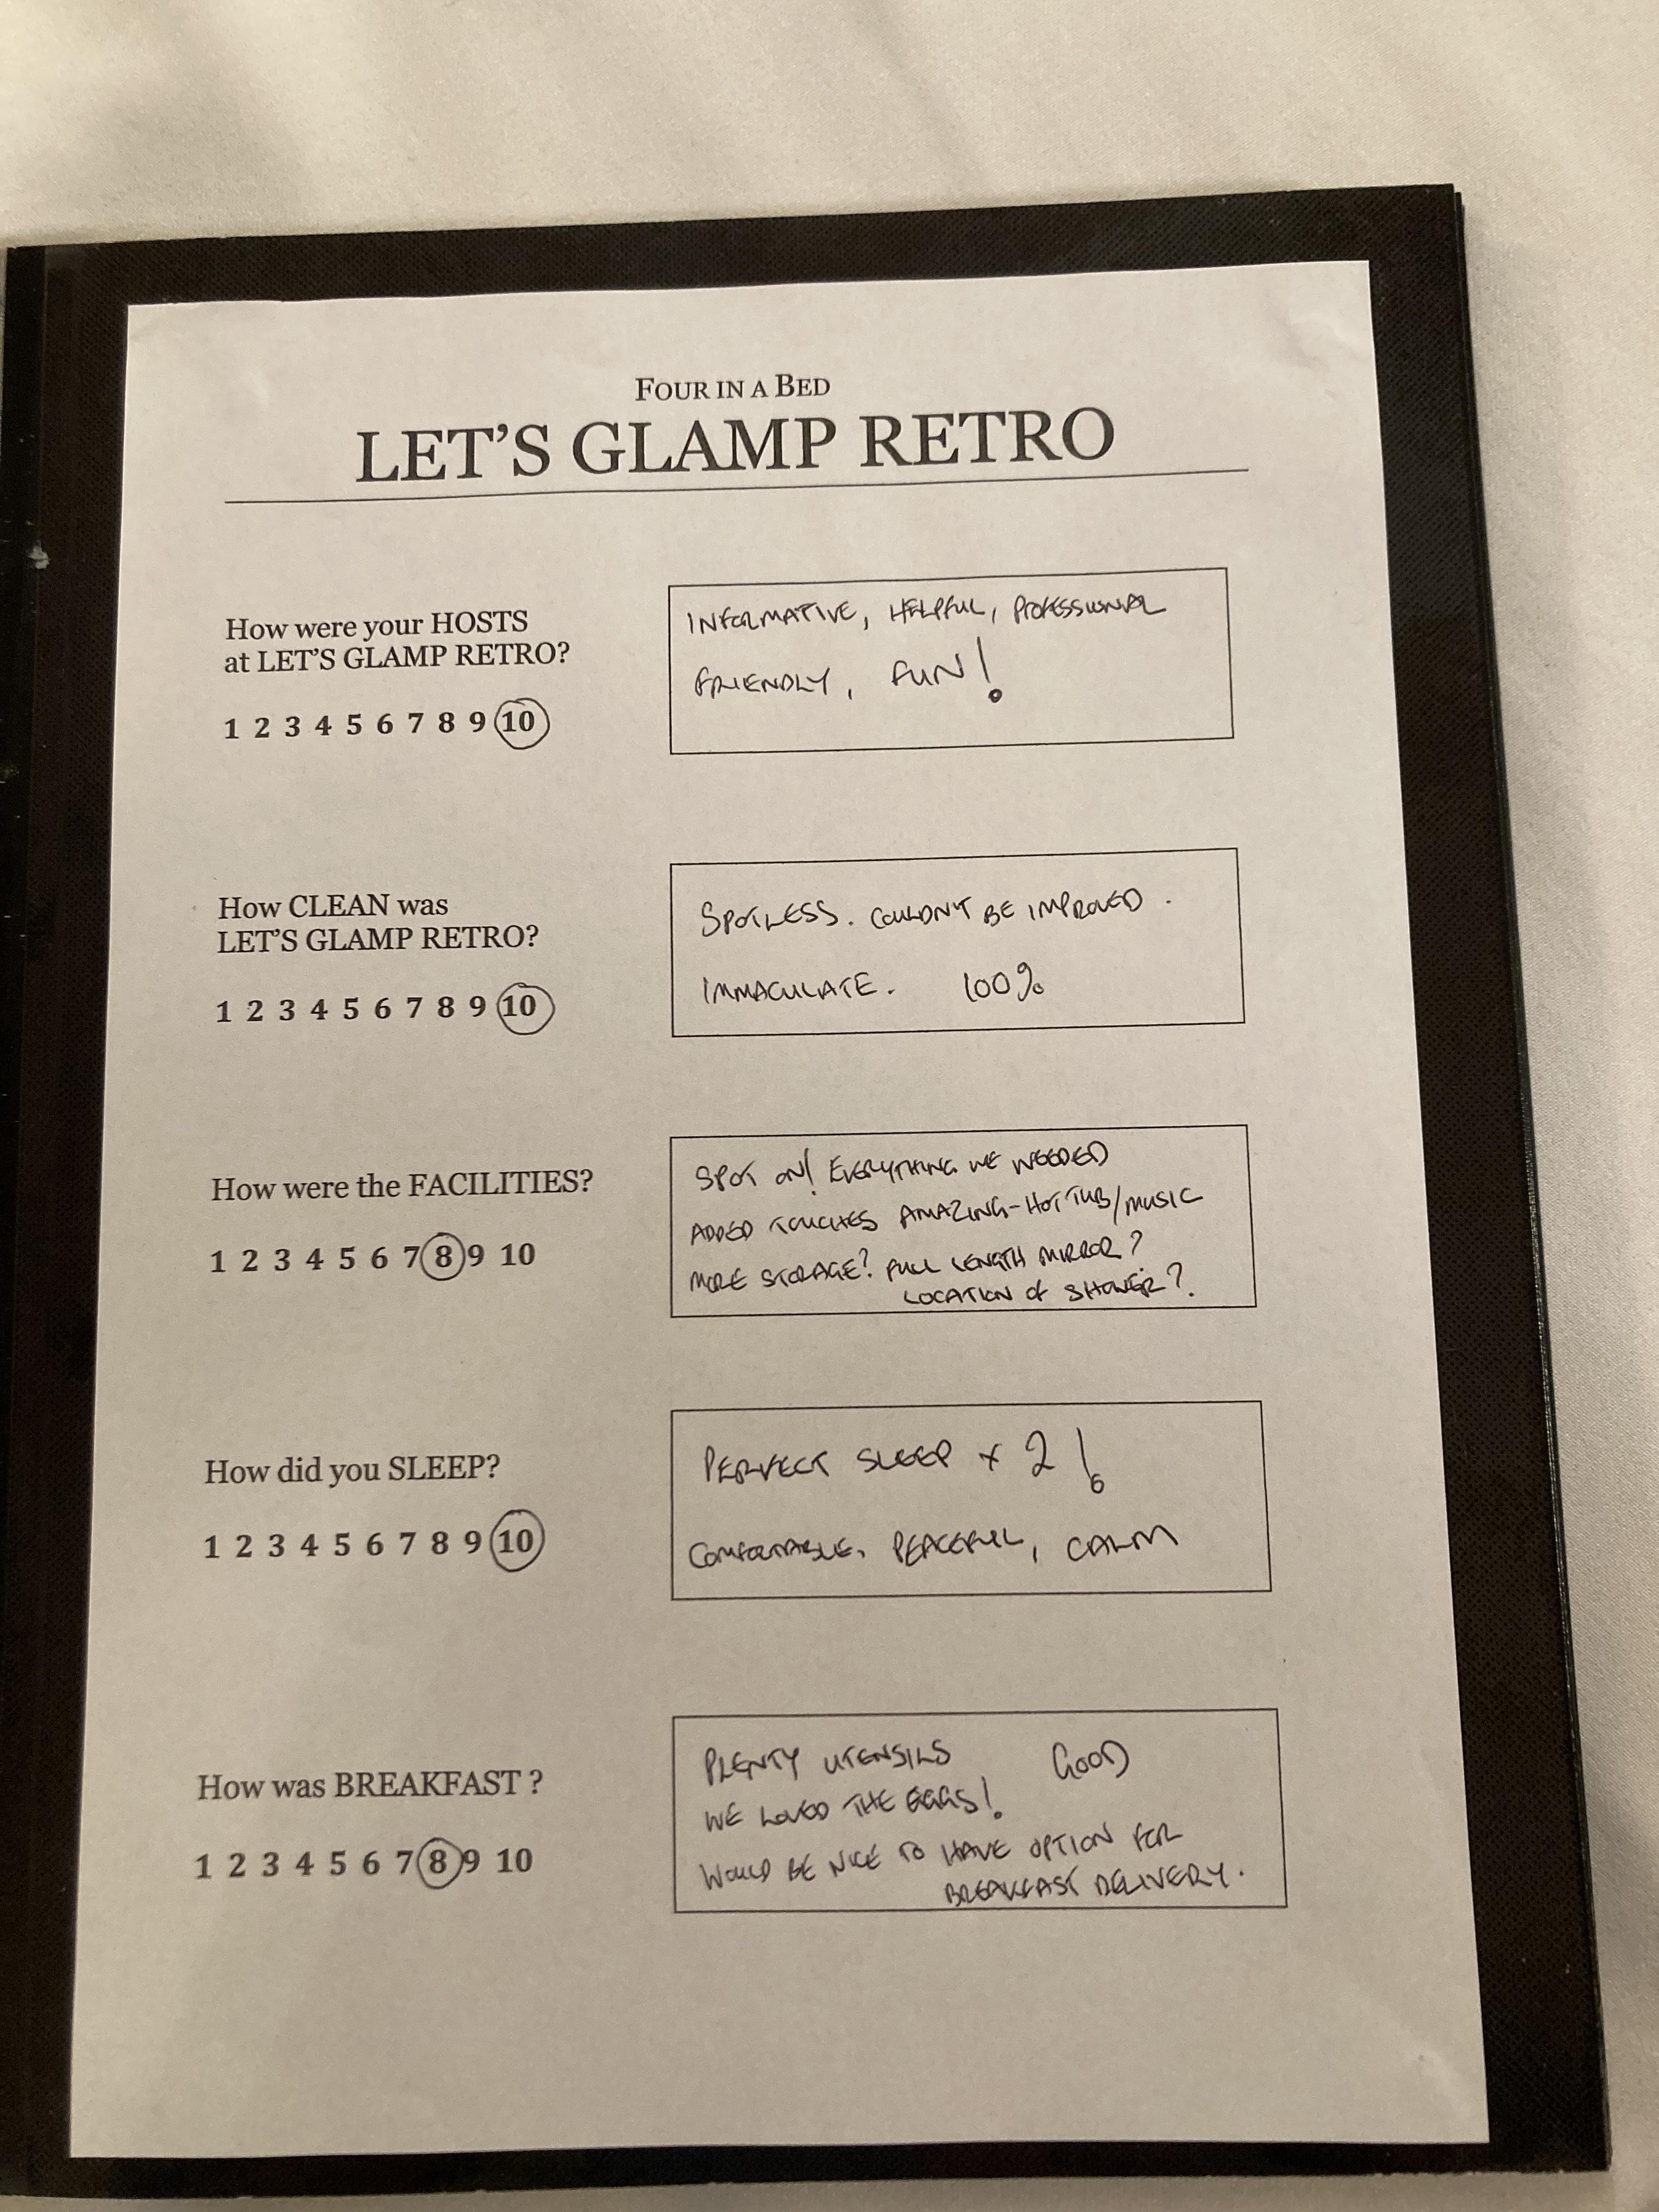 FOUR IN A BED
LET'S GLAMP RETRO
How were your HOSTS
at LET'S GLAMP RETRO?
1 2 3 4 5 6 7 8 9 10
INFORMATIVE, HELPFUL, PROFESSIONAL
FRIENDLY, FUN!
How CLEAN was
LET'S GLAMP RETRO?
1 2 3 4 5 6 7 8 9 10
SPOTLESS. COULDN'T BE IMPROVED.
IMMACULATE. 100%
How were the FACILITIES?
1 2 3 4 5 6 7 8 9 10
SPOT ON! EVERYTHING WE NEEDED
ADDED TOUCHES AMAZING-HOT TUB/MUSIC
MORE STORAGE? FULL LENGTH MIRROR?
LOCATION OF SHOWER?
How did you SLEEP?
1 2 3 4 5 6 7 8 9 10
PERFECT SLEEP x 2!
COMFORTABLE, PEACEFUL, CALM
How was BREAKFAST ?
1 2 3 4 5 6 7 8 9 10
PLENTY UTENSILS GOOD
WE LOVED THE EGGS!
WOULD BE NICE TO HAVE OPTION FOR
BREAKFAST DELIVERY.